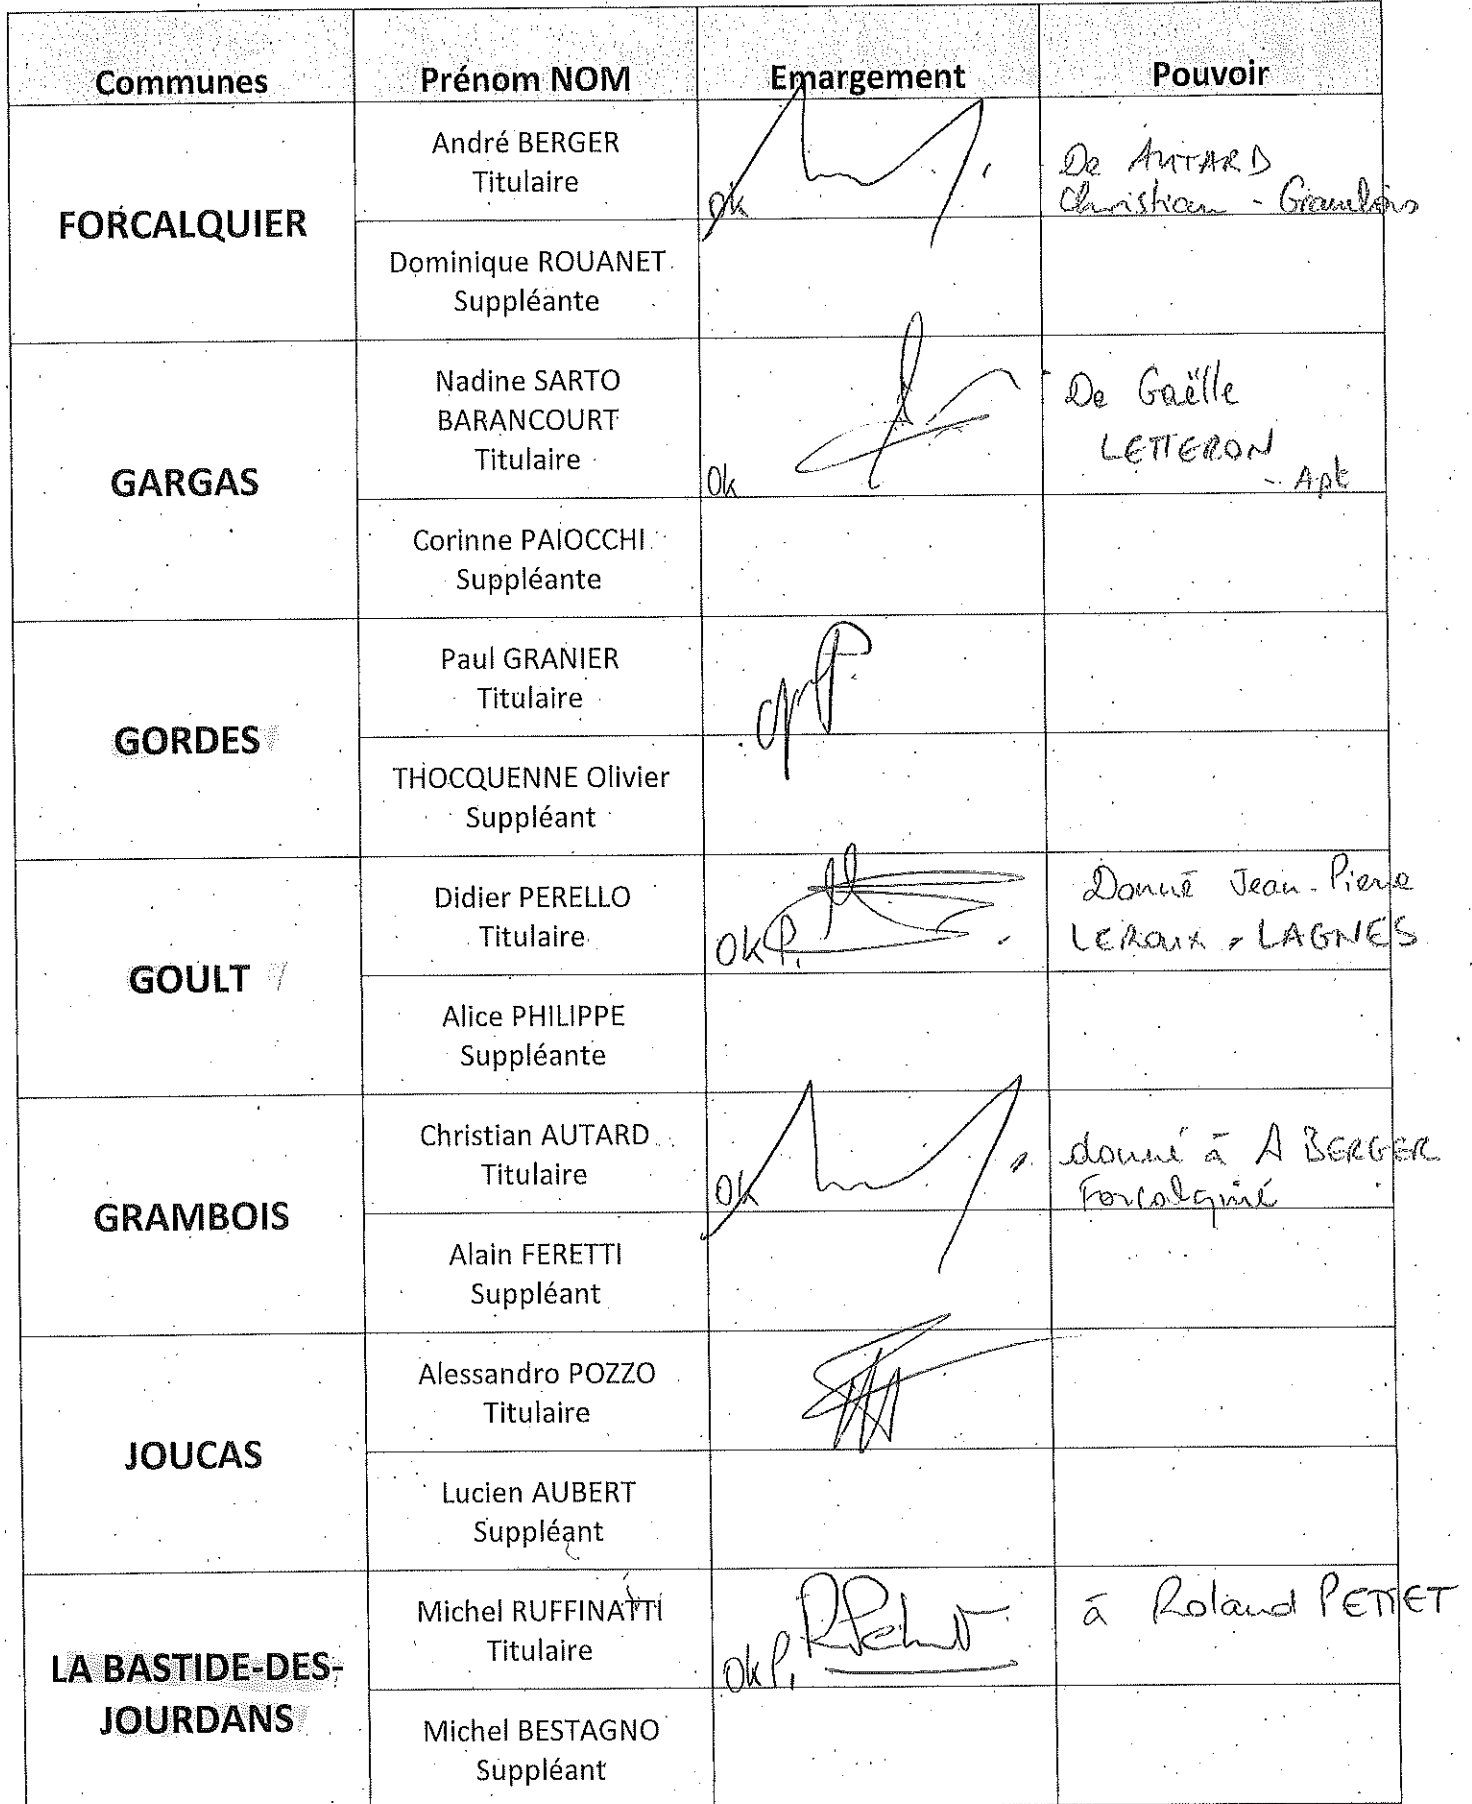 Communes Prénom NOM Emargement Pouvoir
FORCALQUIER
André BERGER
Titulaire
ok
De AUTARD
Christian - Grambois
Dominique ROUANET
Suppléante
GARGAS
Nadine SARTO
BARANCOURT
Titulaire
Ok
De Gaëlle
LETTERON
- Apt
Corinne PAIOCCHI
Suppléante
GORDES
Paul GRANIER
Titulaire
THOCQUENNE Olivier
Suppléant
GOULT
Didier PERELLO
Titulaire
OK P.
Donné Jean-Pierre
LEROUX - LAGNES
Alice PHILIPPE
Suppléante
GRAMBOIS
Christian AUTARD
Titulaire
OK
donné à A BERGER
Forcalquié
Alain FERETTI
Suppléant
JOUCAS
Alessandro POZZO
Titulaire
Lucien AUBERT
Suppléant
LA BASTIDE-DES-
JOURDANS
Michel RUFFINATTI
Titulaire
Ok P.
à Roland PETIET
Michel BESTAGNO
Suppléant